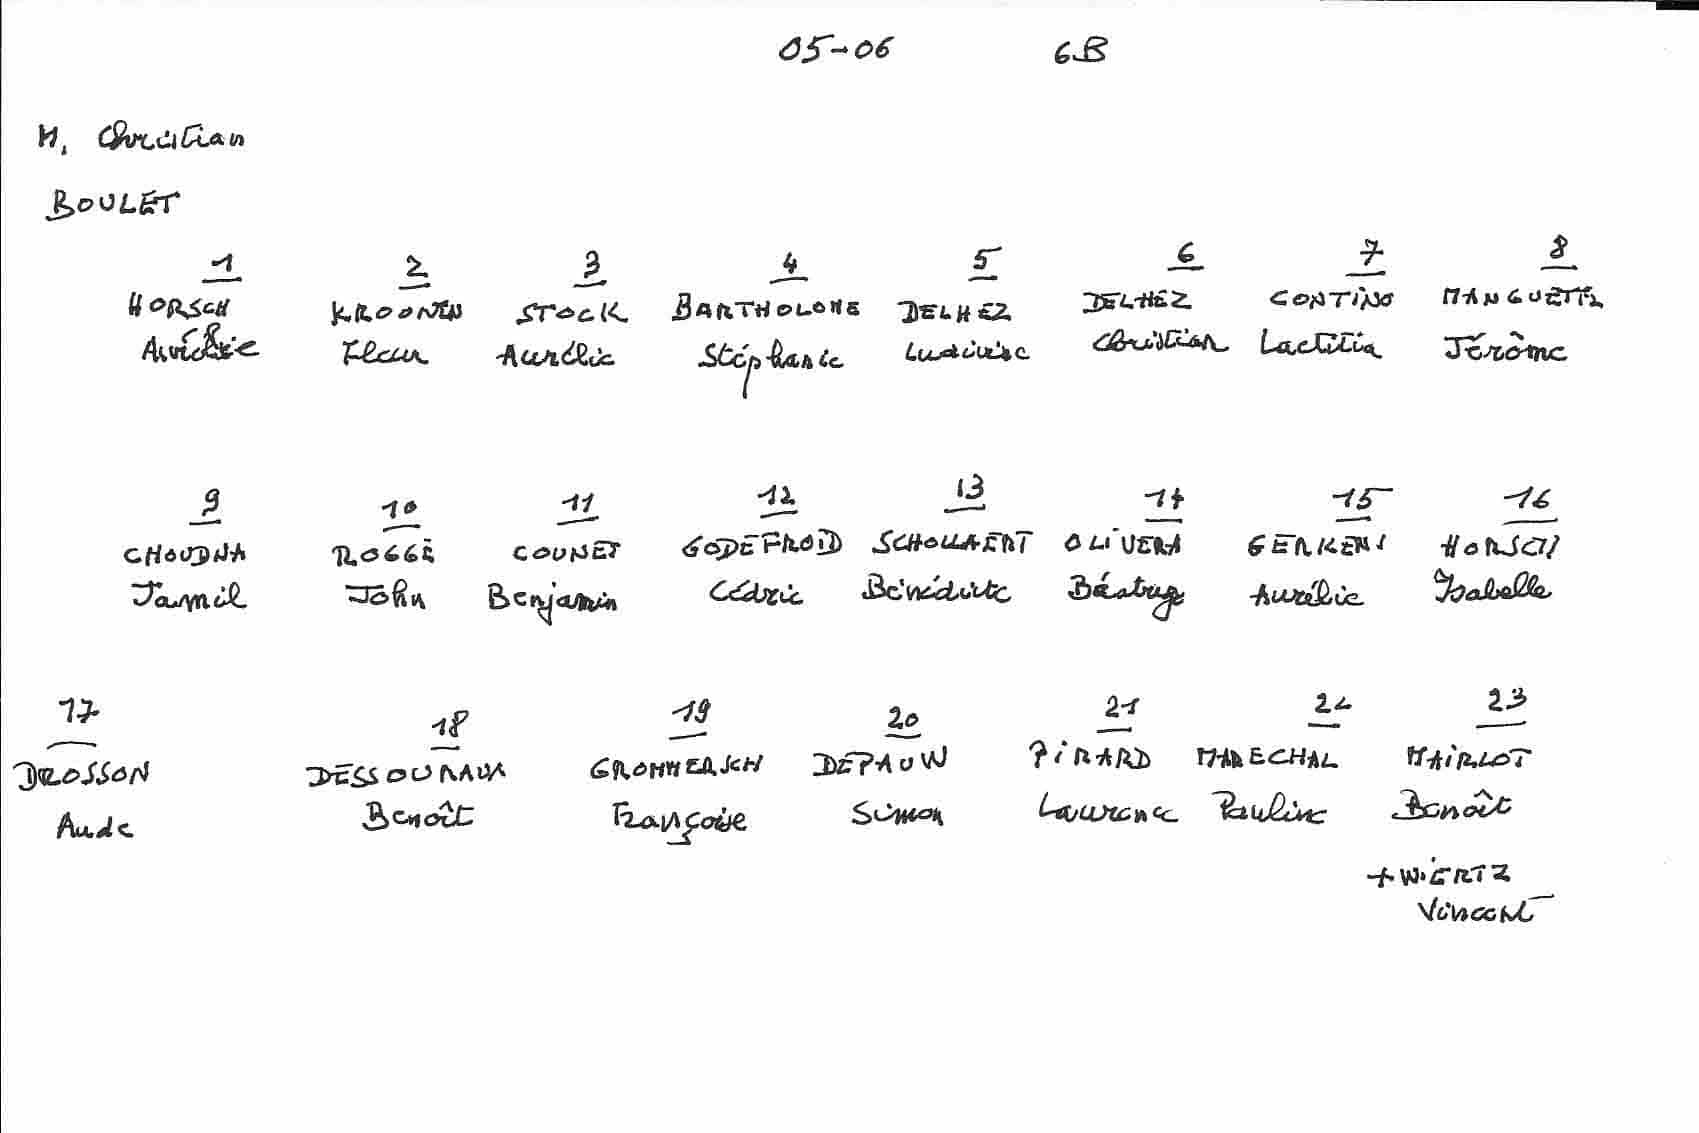 05-06 6B
M. Christian
BOULET
1 2 3 4 5 6 7 8
HORSCH KROONEN STOCK BARTHOLOME DELHEZ DELHEZ CONTINO MANGUETTE
Fleur Aurélie Stéphanie Ludivine Christian Laetitia Jérôme
9 10 11 12 13 14 15 16
CHOUDNA ROGGE COUNET GODEFROID SCHOLLAERT OLIVERA GERKENS HORSCH
Jamil John Benjamin Cédric Bénédicte Aurélie Ysabelle
17 18 19 20 21 22 23
DROSSON DESSOUROUX GROMMERSCH DEPAUW PIRARD MARECHAL MAIRLOT
Aude Benoît Françoise Simon Laurence Pauline Benoît
+ WIERTZ
Vincent